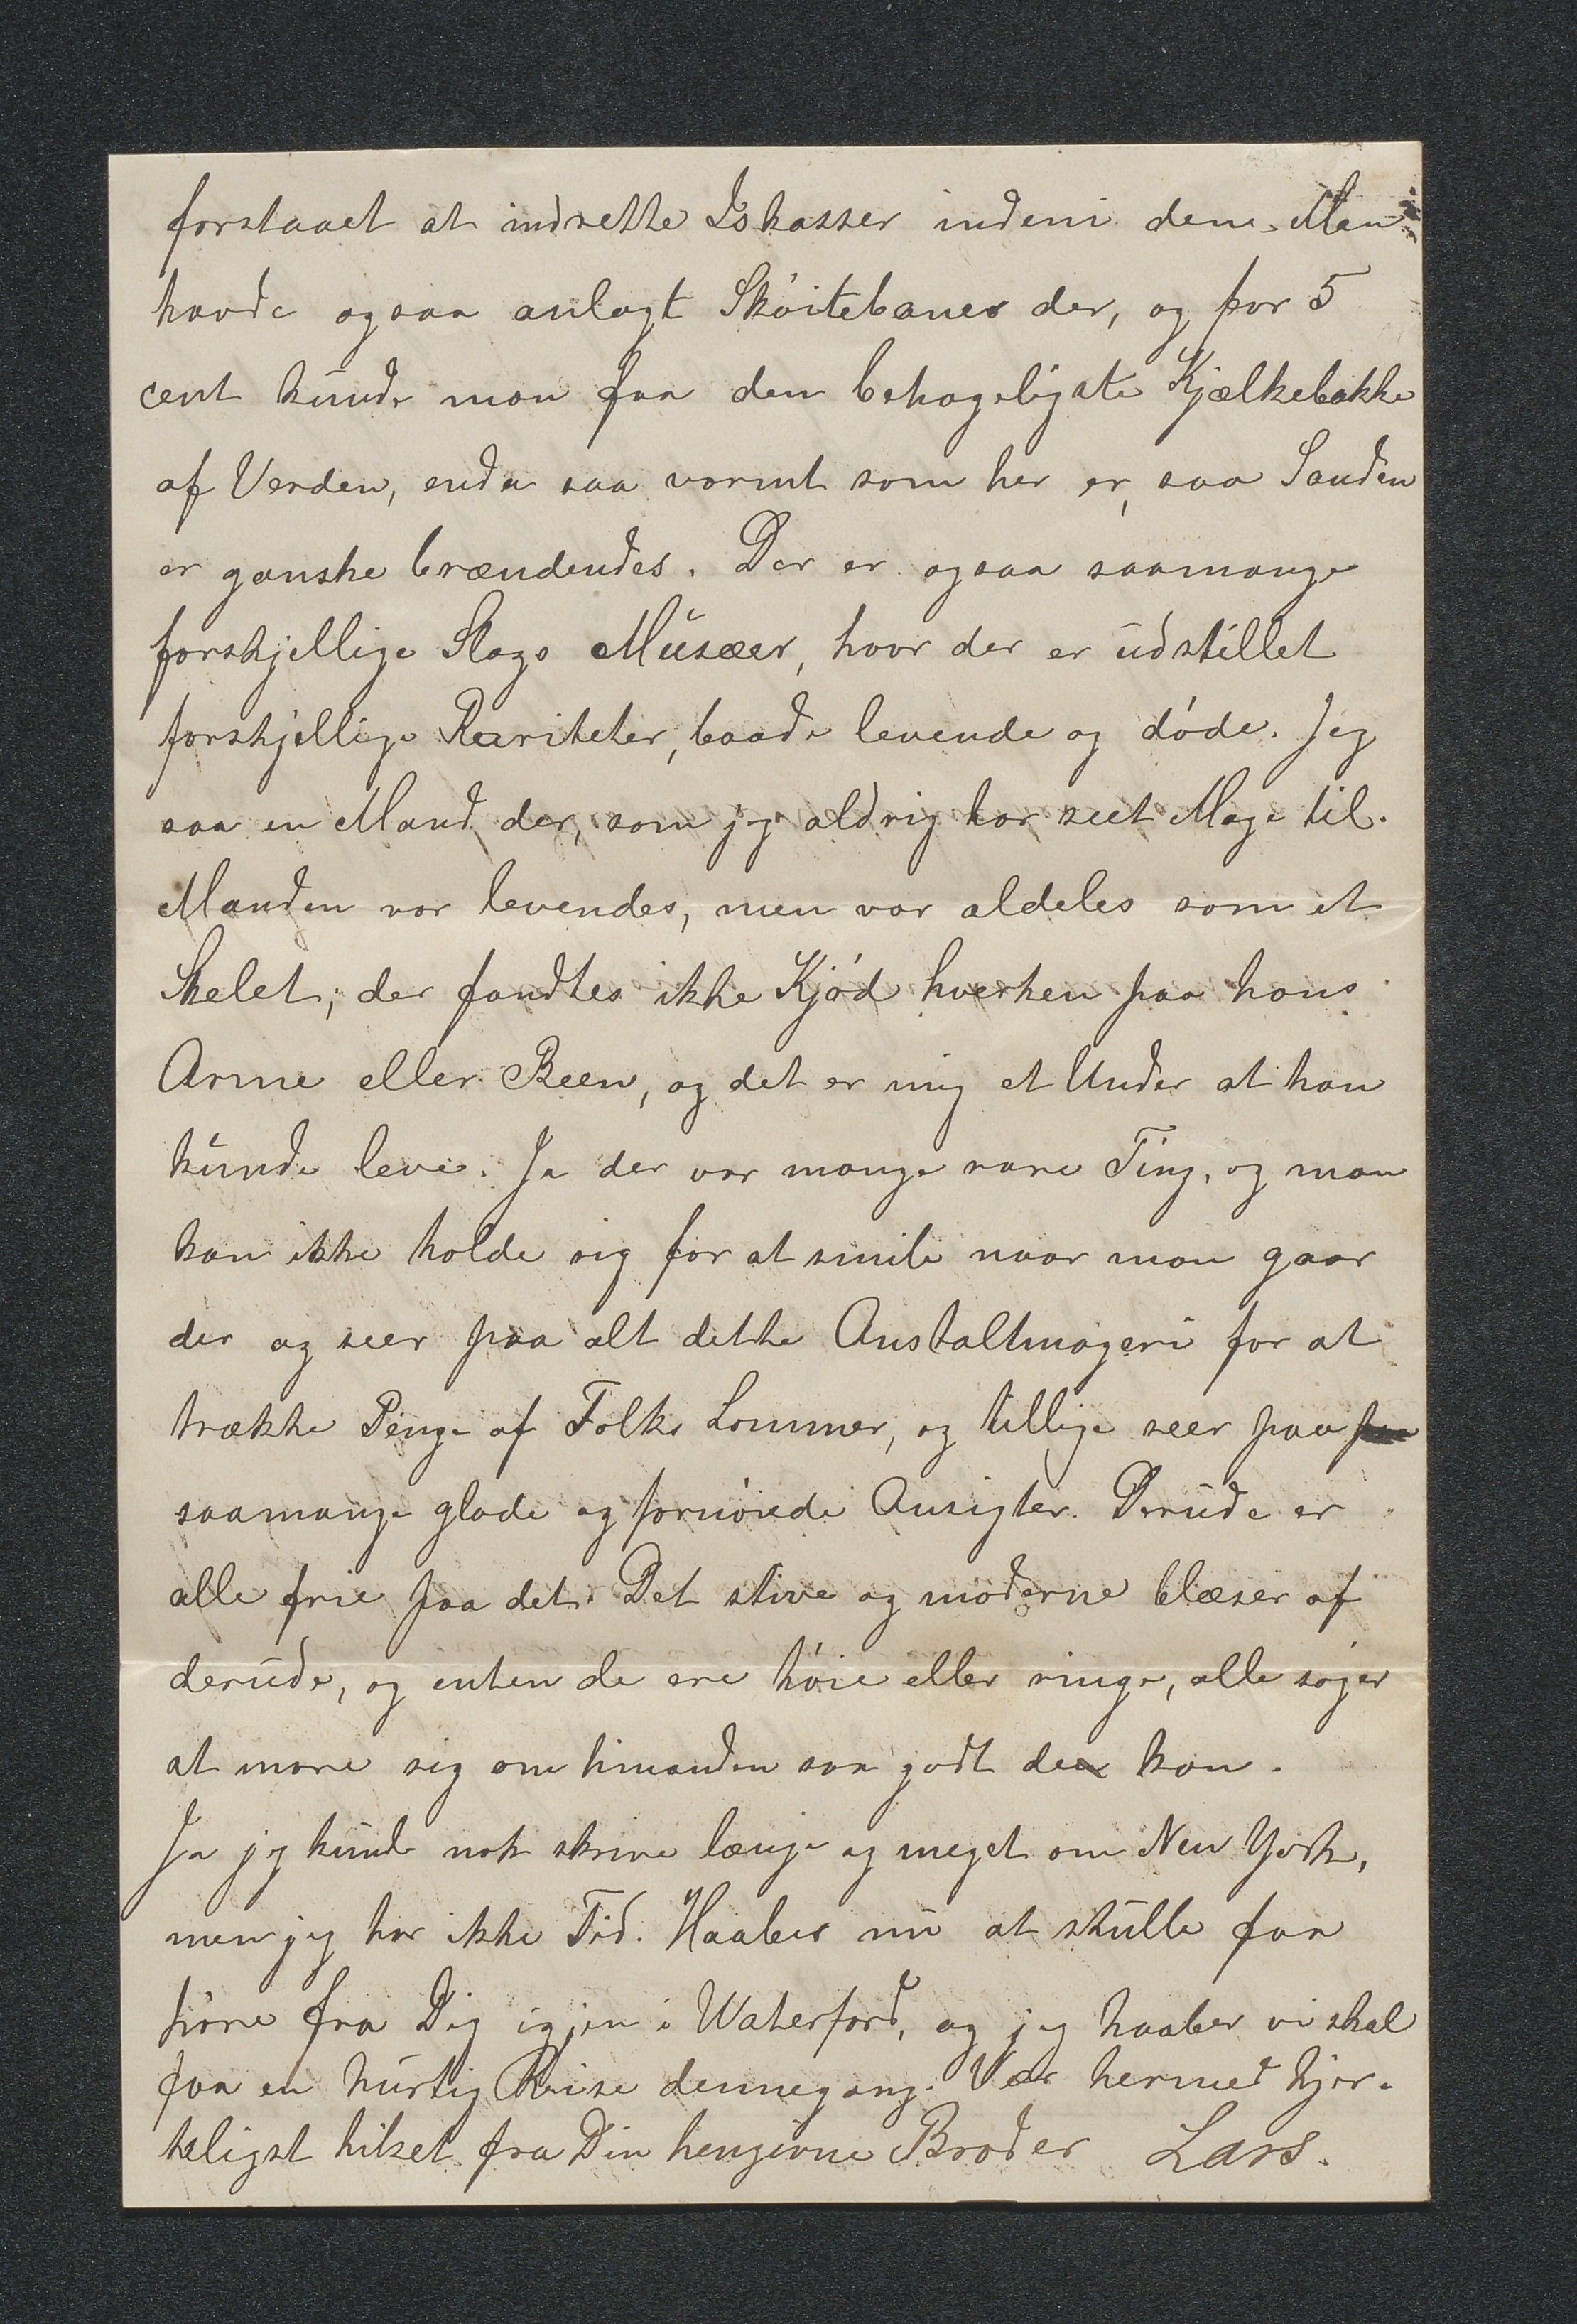 forstaaet at indrette Iskasser indeni dem. Man
havde ogsaa anlagt Skóitebaner der, og for 5
cent kunde man faa den behageligste Kjælkebakke
af Verden, enda saa varmt som her er, saa Sanden
er ganske brændendes. Der er ogsaa saamange
forskjellige Slags Musæer, hvor der er udstillet
forskjellige Rariteter, baade levende og dóde. Jeg
saa en Mand der, som jeg aldrig har seet Mage til.
Manden var levendes, men var aldeles som et
Skelet, der fandtes ikke Kjód hverken paa hans
Arme eller Been, og det er mig et Under at han
kunde leve. Ja der var mange rare Ting, og man
kan ikke holde sig for at smile naar man gaar
der og seer paa alt dette Anstaltmageri for at
trække Penge af Folks Lommer, og tillige seer paa
saamange glade og fornóiede Ansigter. Derude er
alle frie paa det. Det stive og moderne blæser af
derude, og enten de ere hóie eller ringe, alle sóger
at more sig om hinanden saa godt de kan.
Ja jeg kunde nok skrive længe og meget om New York,
men jeg har ikke Tid. Haaber nu at skulle faa
hóre fra Dig igjen i Waterford, og jeg haaber vi skal
faa en hurtig Reise dennegang. Vær hermed hjer-
teligst hilset fra Din hengivne Broder Lars.